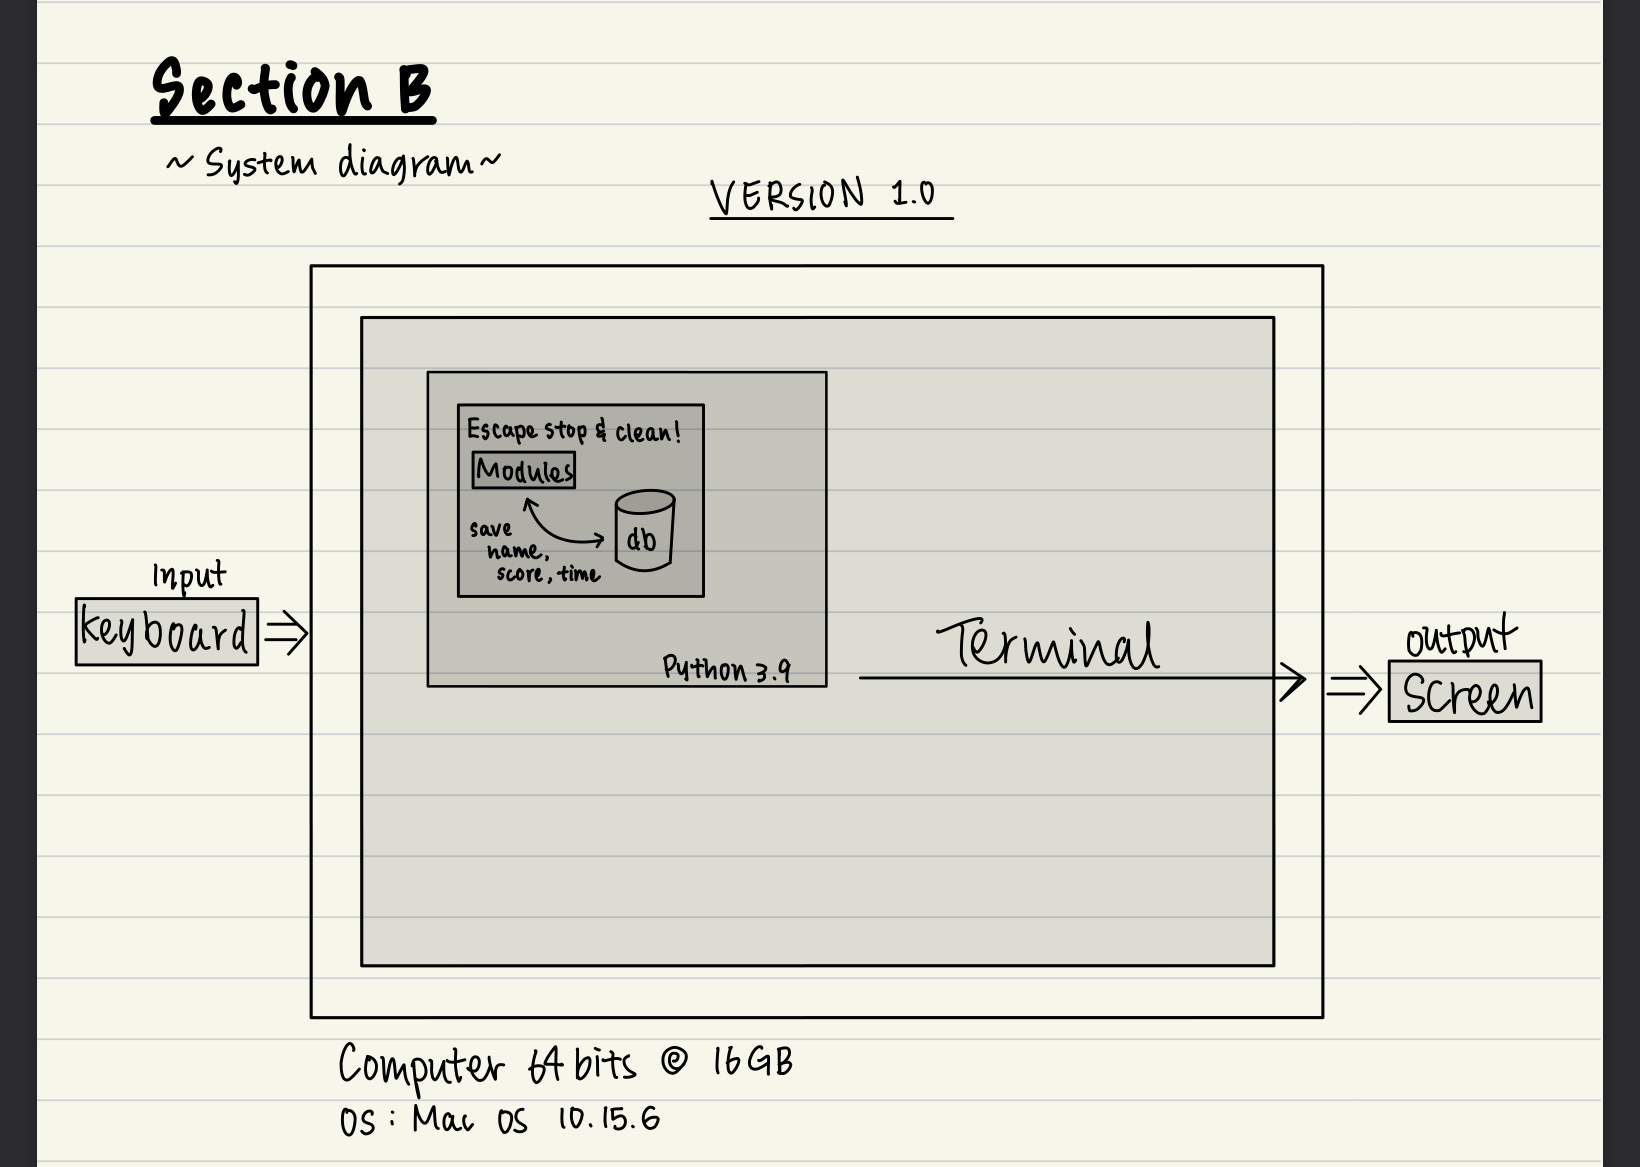 Section B
~ System diagram ~
VERSION 1.0
Escape stop & clean!
Modules
save
name,
score, time
db
Python 3.9
Input
keyboard
Terminal
output
Screen
Computer 64 bits @ 16GB
OS : Mac OS 10.15.6